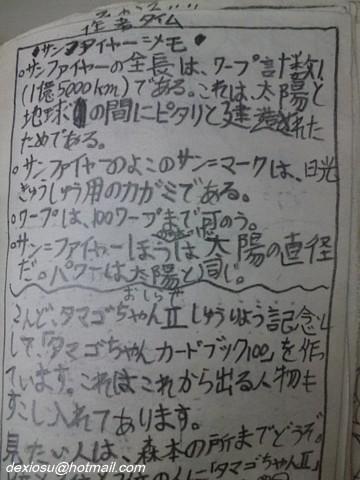 作者タイム
・サンファイヤー=メモ
○サンファイヤーの全長は、ワープ計数1
(1億5000km)である。これは、太陽と
地球の間にピタリと建造された
ためである。
○サンファイヤーのよこのサン=マークは、日光
きゅうしゅう用のカガミである。
○ワープは、100ワープまで可のう。
○サン=ファイヤーほうは、太陽の直径
だ。パワーは太陽と同じ。
おしらせ
こんど、タマゴちゃんⅡしゅうりょう記念と
して、「タマゴちゃんカードブック100」を作っ
ています。これはこれから出る人物も
すこし入れてあります。
見たい人は、森本の所までどうぞ。
「タマゴちゃんⅡ」
dexiosu@hotmail.com